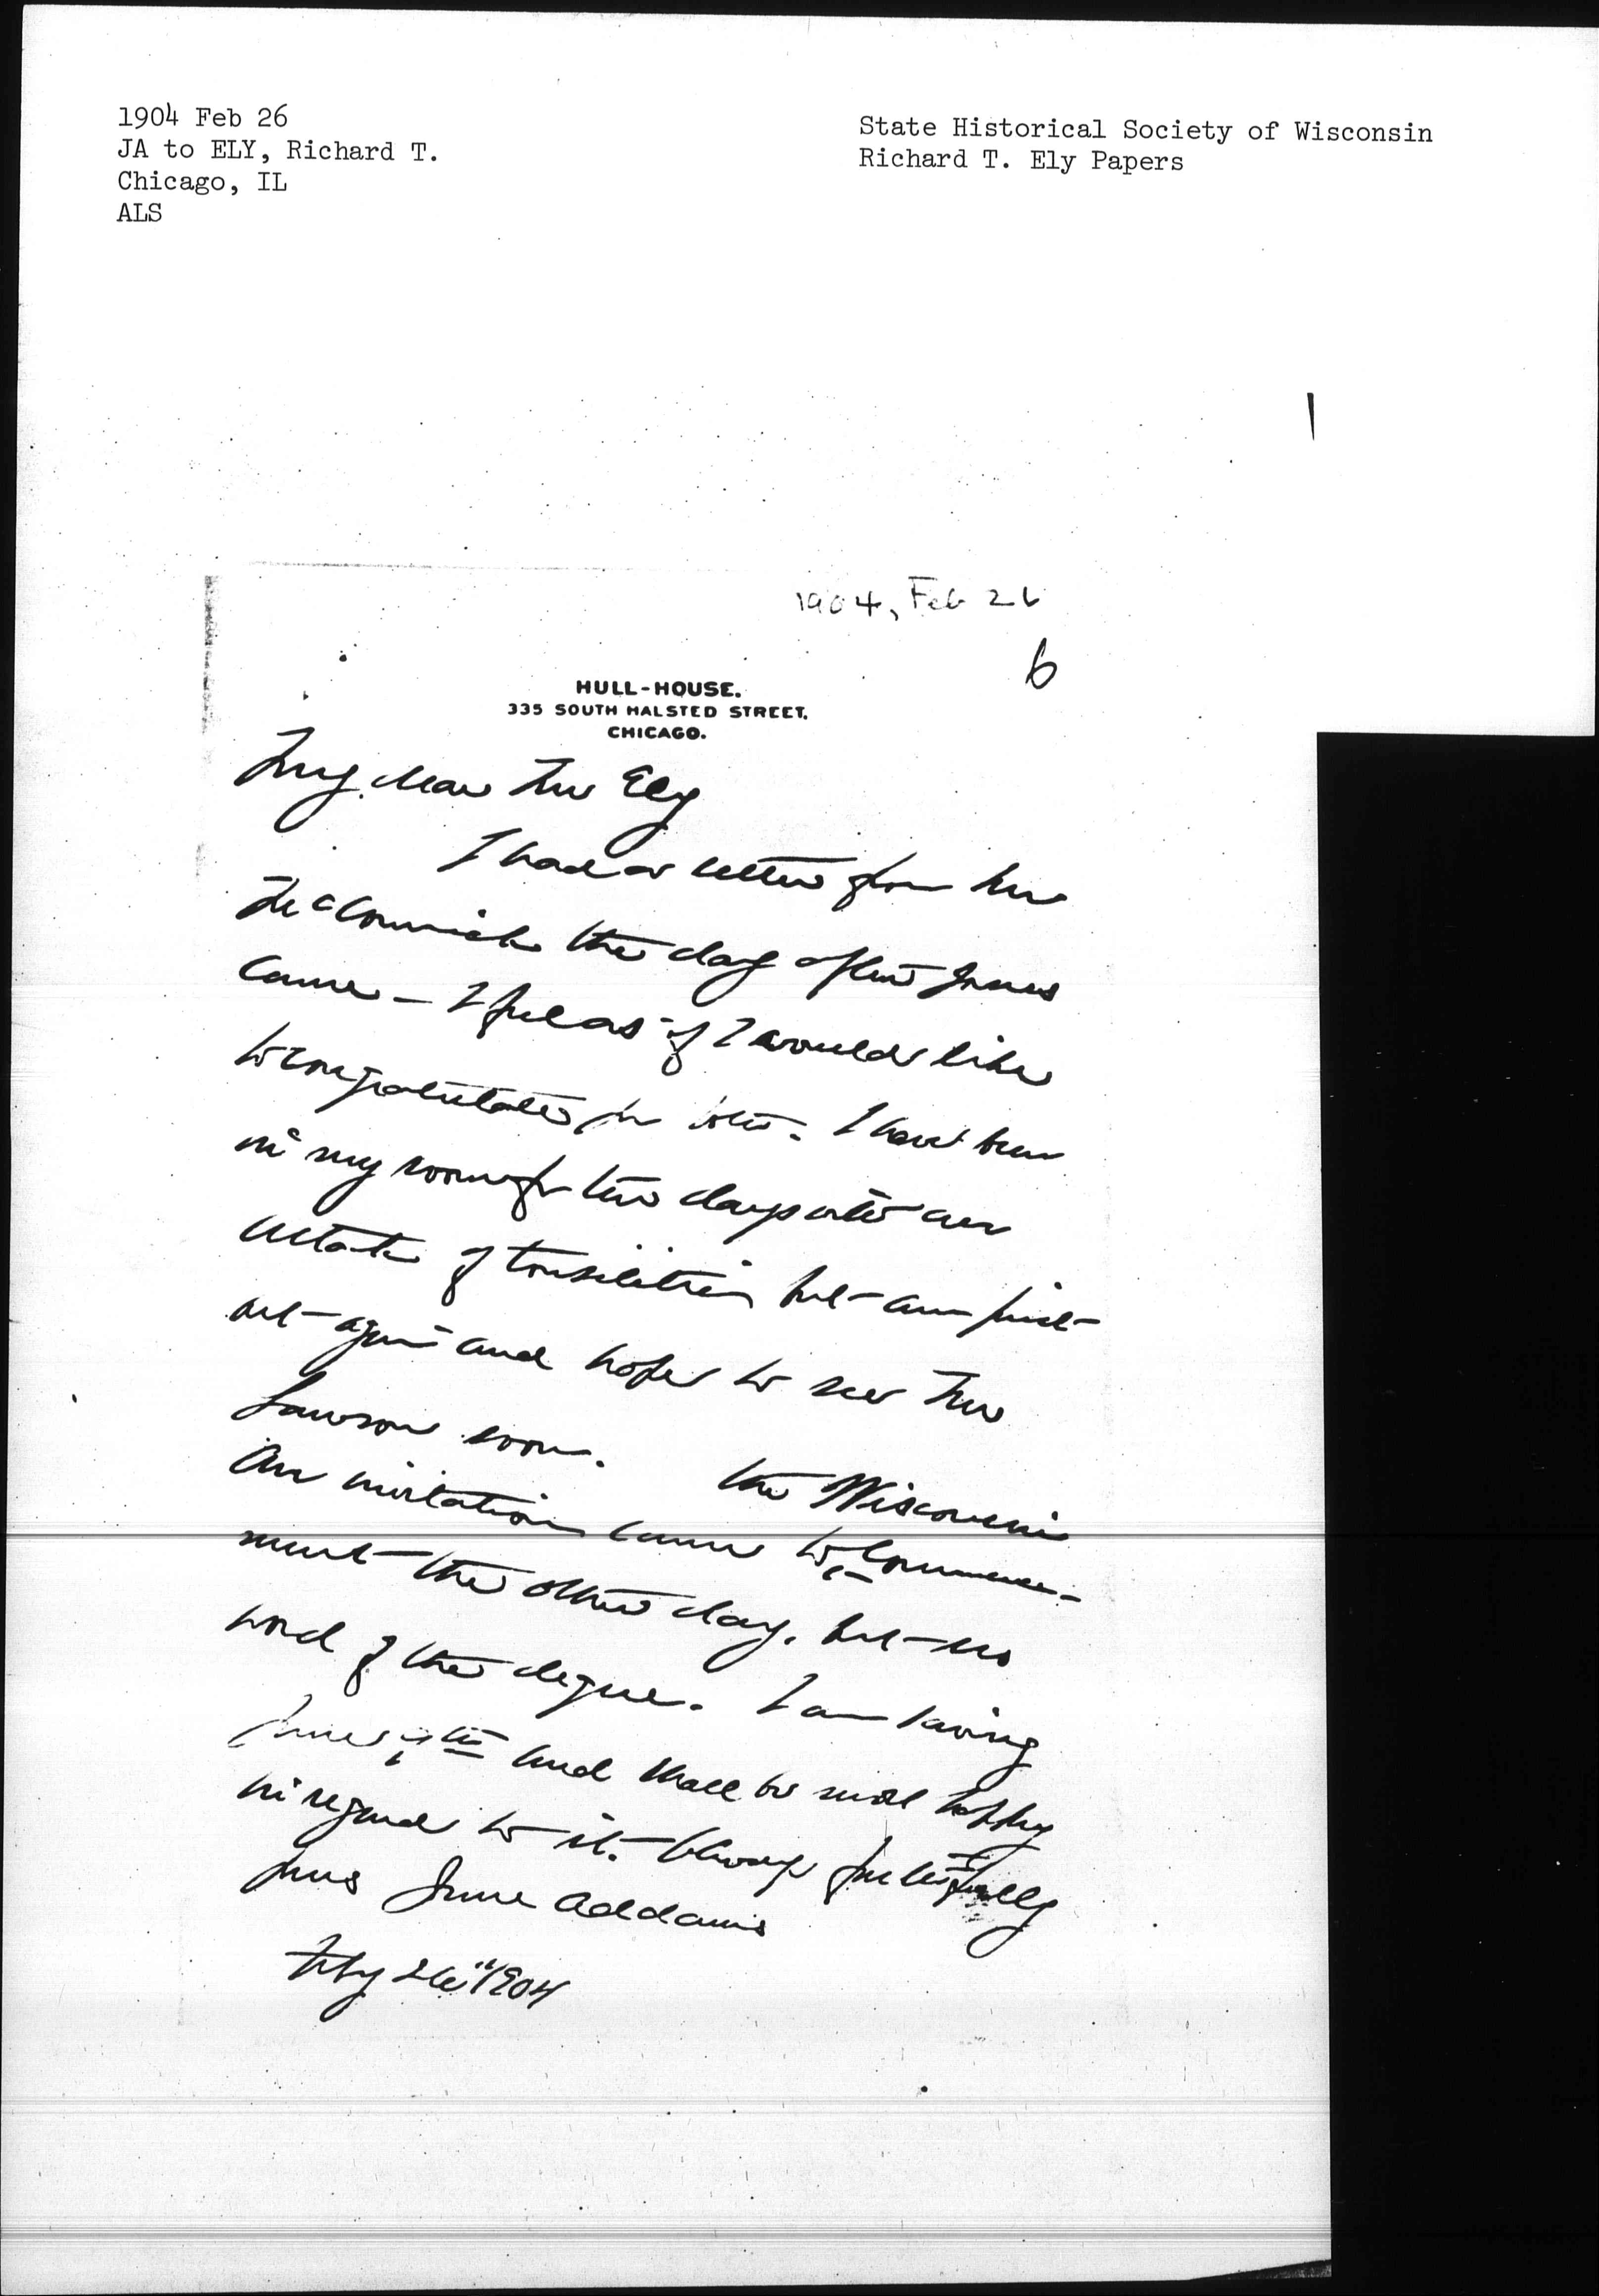 1904 Feb 26
JA to ELY, Richard T.
Chicago, IL
ALS
State Historical Society of Wisconsin
Richard T. Ely Papers
1904, Feb 26
6
HULL-HOUSE.
335 SOUTH HALSTED STREET.
CHICAGO.
My dear Mr Ely
I had a letter from Mr
McCormick the day after yours
came — I feel as if I would like
to congratulate for both. I have been
in my room for two days with an
attack of tonsilitis but am just
out again and hope to see Mr
Lawson soon.
the Wisconsin
An invitation came to Commence-
ment the other day, but no
word of the degree. I am saving
June and shall be most happy
in regard to it. Always faithfully
yours Jane Addams
Feby 26" 1904